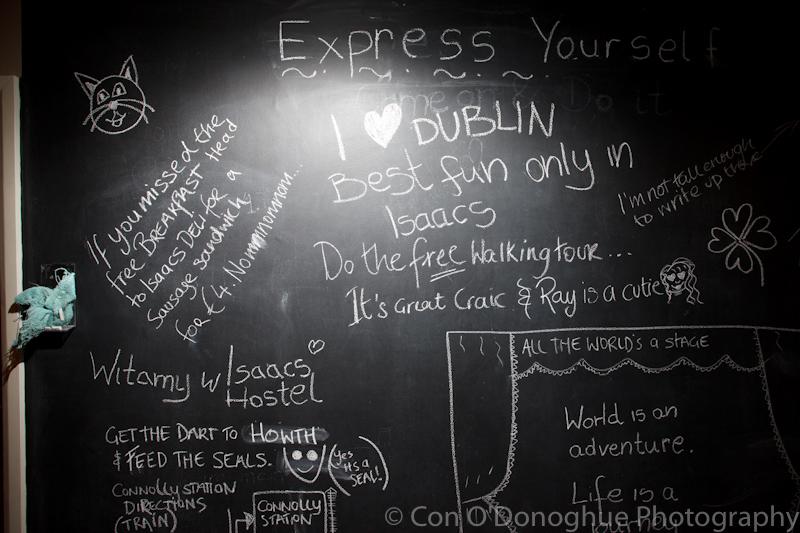 Express Yourself
Come on & Do it
I ♥ DUBLIN
Best fun only in
Isaacs
Do the free Walking tour...
It's Great Craic & Ray is a cutie
I'm not tall enough
to write up there
If you missed the
free BREAKFAST Head
to Isaacs DELI for a
Sausage sandwich
for €4. Nommnommom...
Witamy w Isaacs
Hostel
GET THE DART TO HOWTH
& FEED THE SEALS.
(Yes
it's a
SEAL!)
CONNOLLY STATION
DIRECTIONS
(TRAIN)
CONNOLLY
STATION
ALL THE WORLD'S A STAGE
World is an
adventure.
Life is a
journey
© Con O'Donoghue Photography